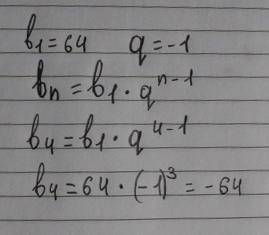 b₁ = 64 q = -1
bₙ = b₁ · qⁿ⁻¹
b₄ = b₁ · q⁴⁻¹
b₄ = 64 · (-1)³ = -64